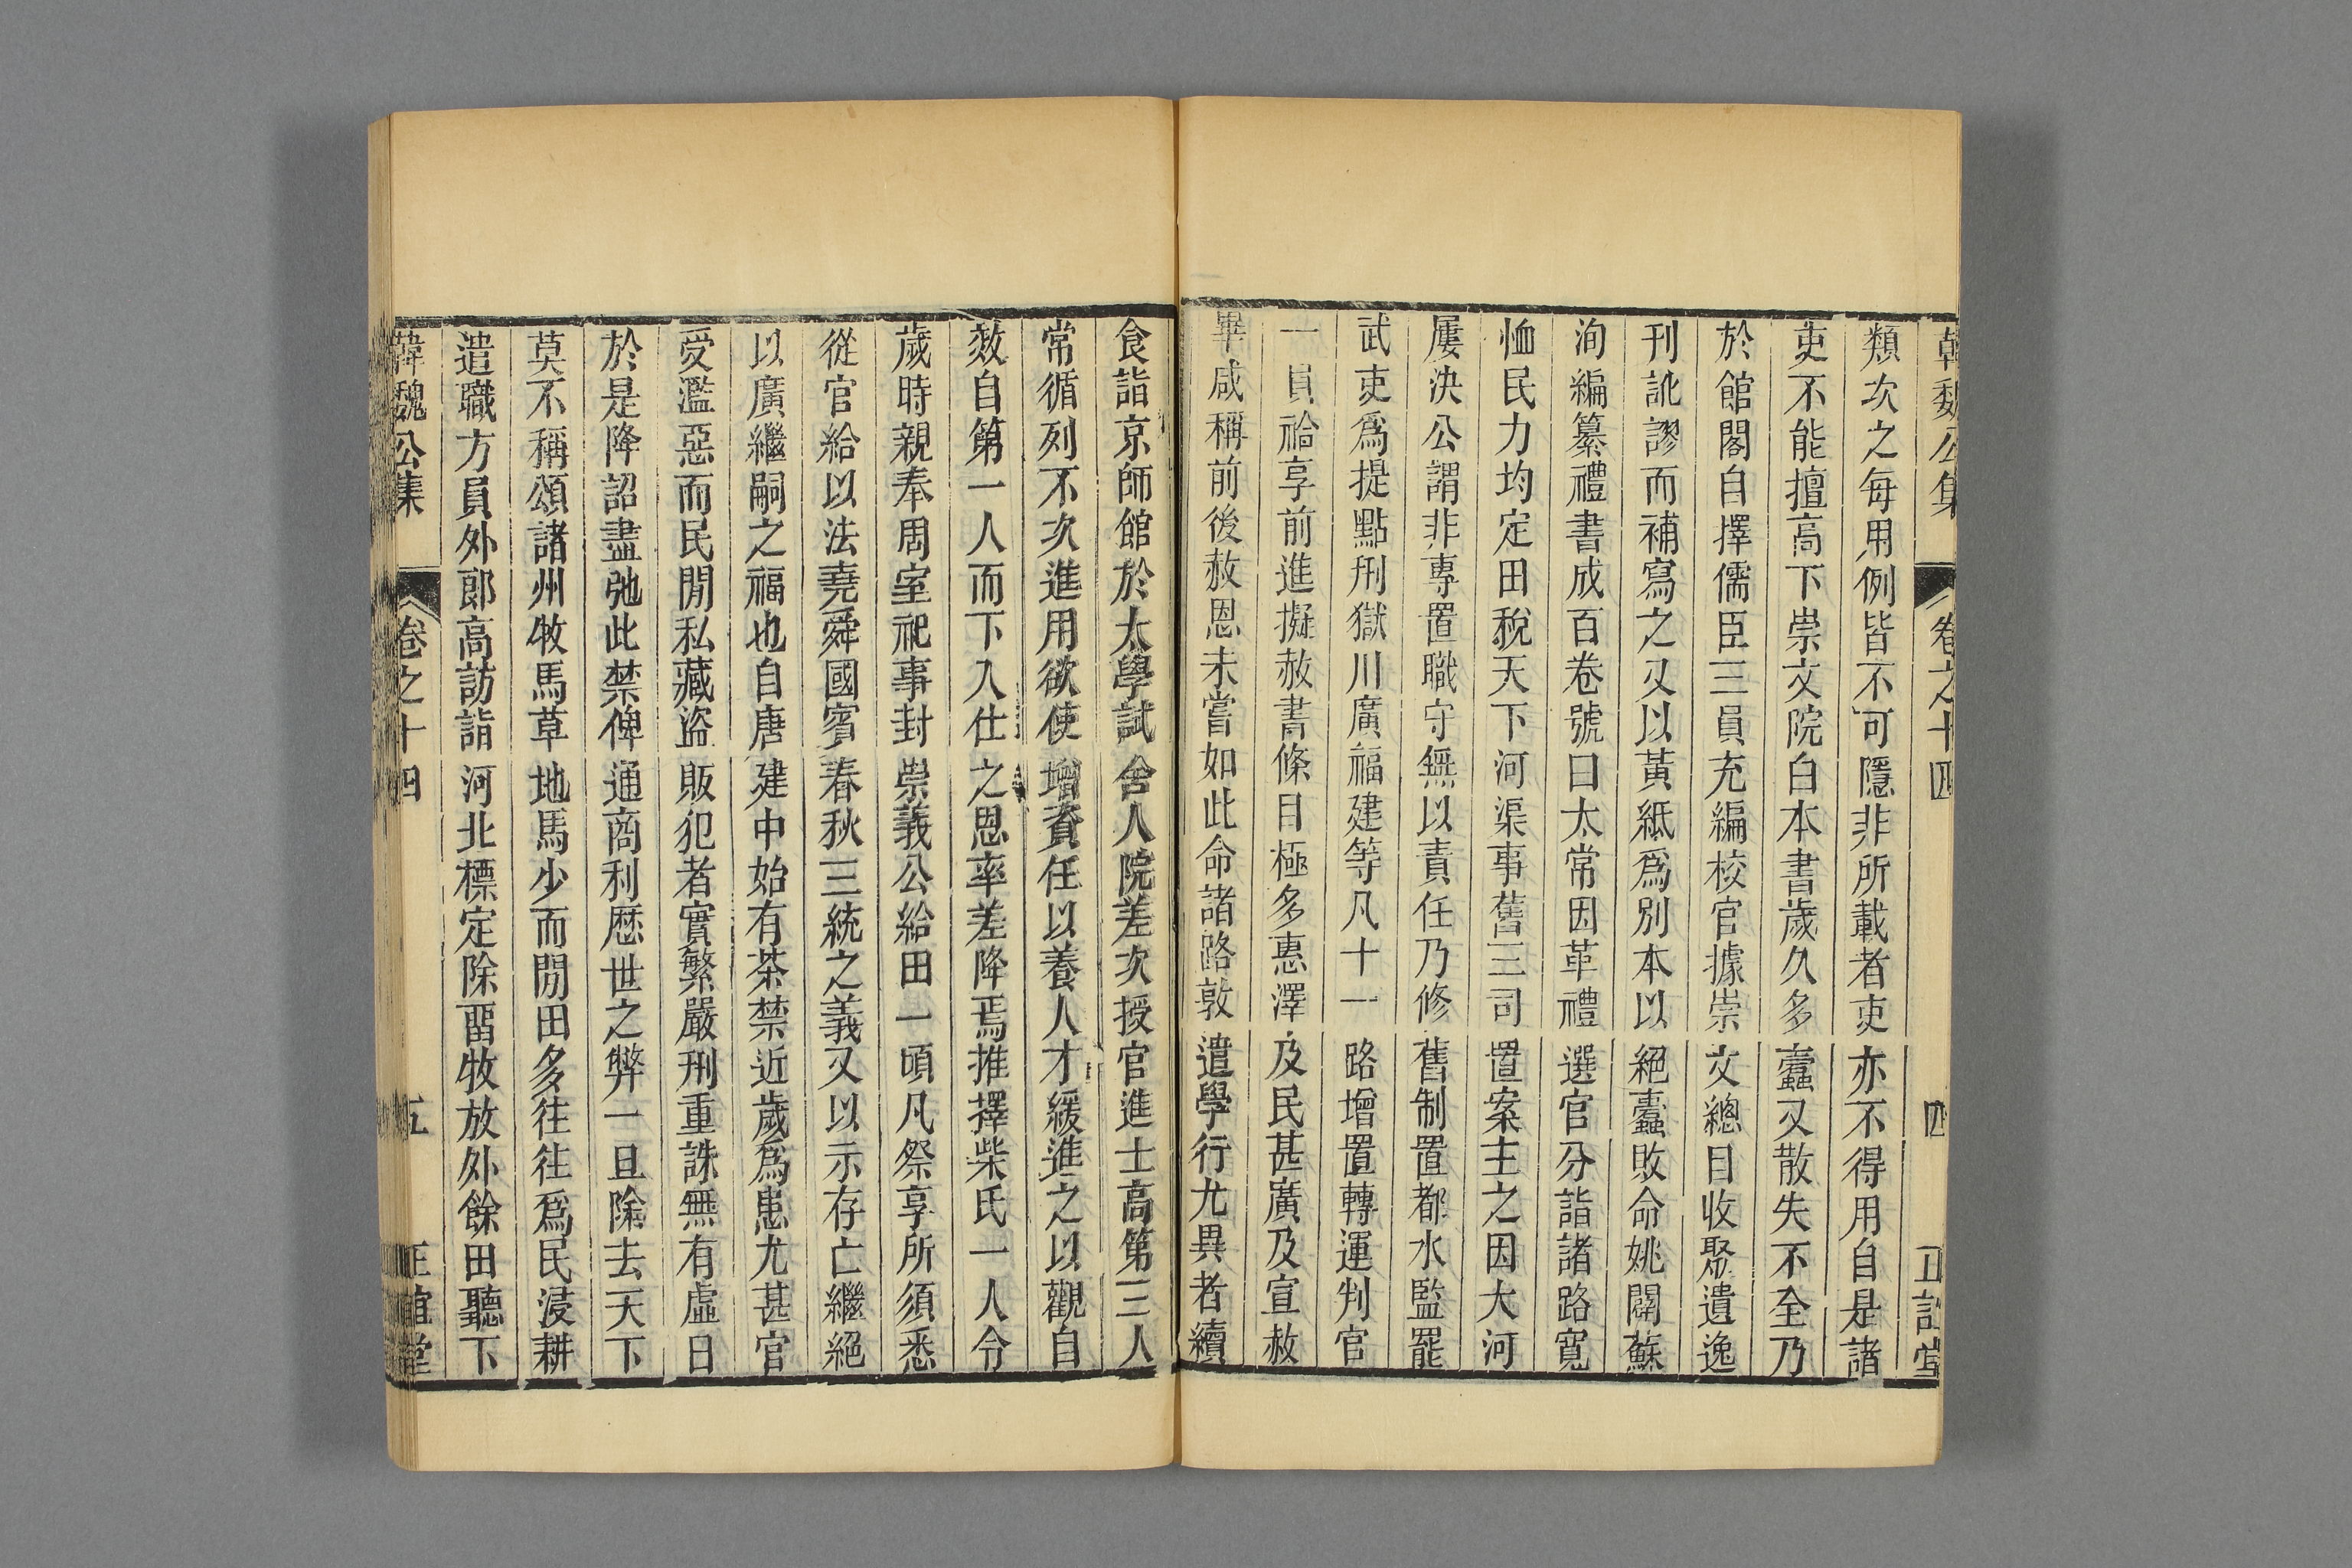 韓魏公集 卷之十四 四 正誼堂
類次之每用例皆不可隱非所載者吏亦不得用自是諸
吏不能擅高下崇文院白本書歲久多蠹又散失不全乃
於館閣自擇儒臣三員充編校官據崇文總目收聚遺逸
刊訛謬而補寫之又以黃紙爲別本以絕蠹敗命姚闢蘇
洵編纂禮書成百卷號曰太常因革禮選官分詣諸路寬
恤民力均定田稅天下河渠事舊三司置案主之因大河
屢決公謂非專置職守無以責任乃修舊制置都水監罷
武吏爲提點刑獄川廣福建等凡十一路增置轉運判官
一員祫享前進擬赦書條目極多惠澤及民甚廣及宣赦
畢咸稱前後赦恩未嘗如此命諸路敦遣學行尤異者續
食詣京師館於太學試舍人院差次授官進士高第三人
常循列不次進用欲使增資任以養人才緩進之以觀自
效自第一人而下入仕之恩率差降焉推擇柴氏一人令
歲時親奉周室祀事封崇義公給田一頃凡祭享所須悉
從官給以法堯舜國賓春秋三統之義又以示存亡繼絕
以廣繼嗣之福也自唐建中始有茶禁近歲爲患尤甚官
受濫惡而民閒私藏盜販犯者實繁嚴刑重誅無有虛日
於是降詔盡弛此禁俾通商利歷世之弊一旦除去天下
莫不稱頌諸州牧馬草地馬少而閒田多往往爲民浸耕
遣職方員外郎高訪詣河北標定除留牧放外餘田聽下
韓魏公集 卷之十四 五 正誼堂